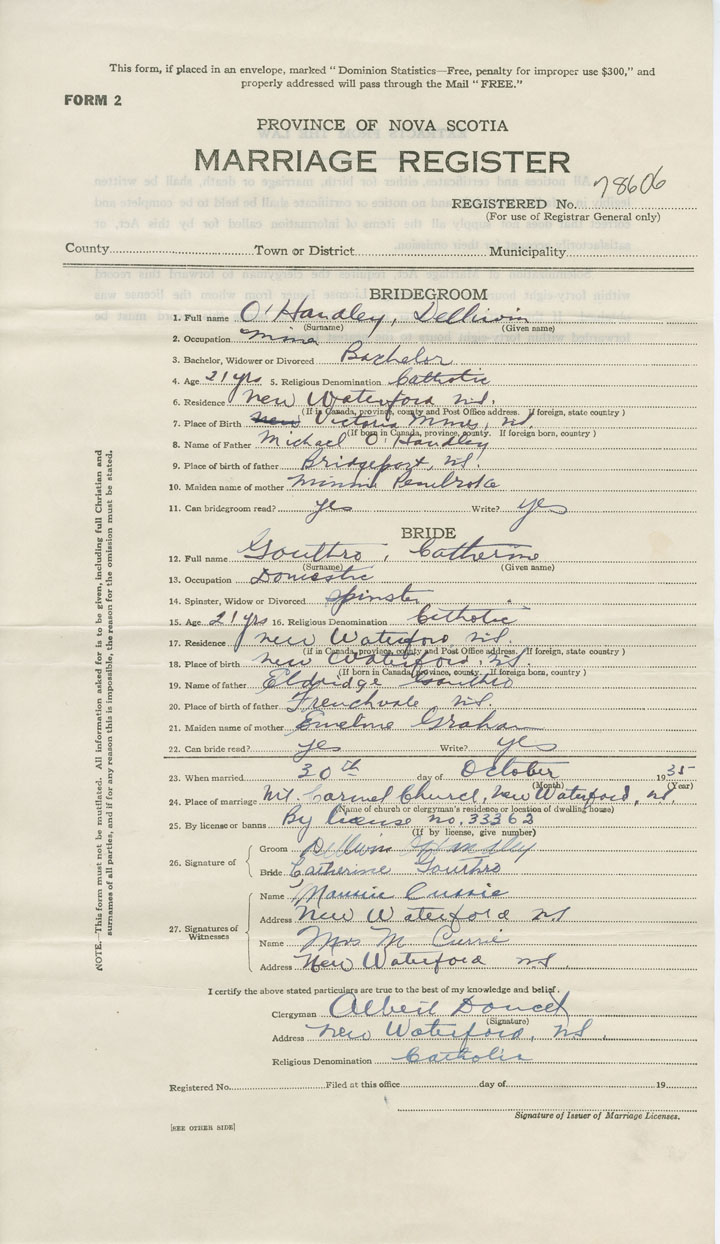 This form, if placed in an envelope, marked "Dominion Statistics—Free, penalty for improper use $300," and
properly addressed will pass through the Mail "FREE."
FORM 2
PROVINCE OF NOVA SCOTIA
MARRIAGE REGISTER
REGISTERED No. 78606
(For use of Registrar General only)
County Town or District Municipality
BRIDEGROOM
1. Full name O'Handley,
(Surname) (Given name)
2. Occupation Miner
3. Bachelor, Widower or Divorced Bachelor
4. Age 21 yrs 5. Religious Denomination Catholic
6. Residence New Waterford N.S.
(If in Canada, province, county and Post Office address. If foreign, state country)
7. Place of Birth New Victoria Mines, N.S.
(If born in Canada, province, county. If foreign born, country)
8. Name of Father Michael O'Handley
9. Place of birth of father Bridgeport, N.S.
10. Maiden name of mother Minnie Pembroke
11. Can bridegroom read? yes Write? yes
BRIDE
12. Full name Gouthro, Catherine
(Surname) (Given name)
13. Occupation Domestic
14. Spinster, Widow or Divorced Spinster
15. Age 21 yrs 16. Religious Denomination Catholic
17. Residence New Waterford N.S.
(If in Canada, province, county and Post Office address. If foreign, state country)
18. Place of birth New Waterford, N.S.
(If born in Canada, province, county. If foreign born, country)
19. Name of father Eldridge Gouthro
20. Place of birth of father Frenchvale N.S.
21. Maiden name of mother Emeline Graham
22. Can bride read? yes Write? yes
23. When married 30th day of October 1935
(Month) (Year)
24. Place of marriage Mt. Carmel Church, New Waterford, N.S.
(Name of church or clergyman's residence or location of dwelling house)
25. By license or banns By license no. 33362
(If by license, give number)
26. Signature of
Groom
Bride Catherine Gouthro
27. Signatures of Witnesses
Name Currie
Address New Waterford N.S.
Name Mrs M. Currie
Address New Waterford N.S.
I certify the above stated particulars are true to the best of my knowledge and belief.
Clergyman Albert Doucet
(Signature)
Address New Waterford, N.S.
Religious Denomination Catholic
Registered No. Filed at this office day of 19
Signature of Issuer of Marriage Licenses.
[SEE OTHER SIDE]
NOTE.—This form must not be mutilated. All information asked for is to be given, including full Christian and
surnames of all parties, and if for any reason this is impossible, the reason for the omission must be stated.